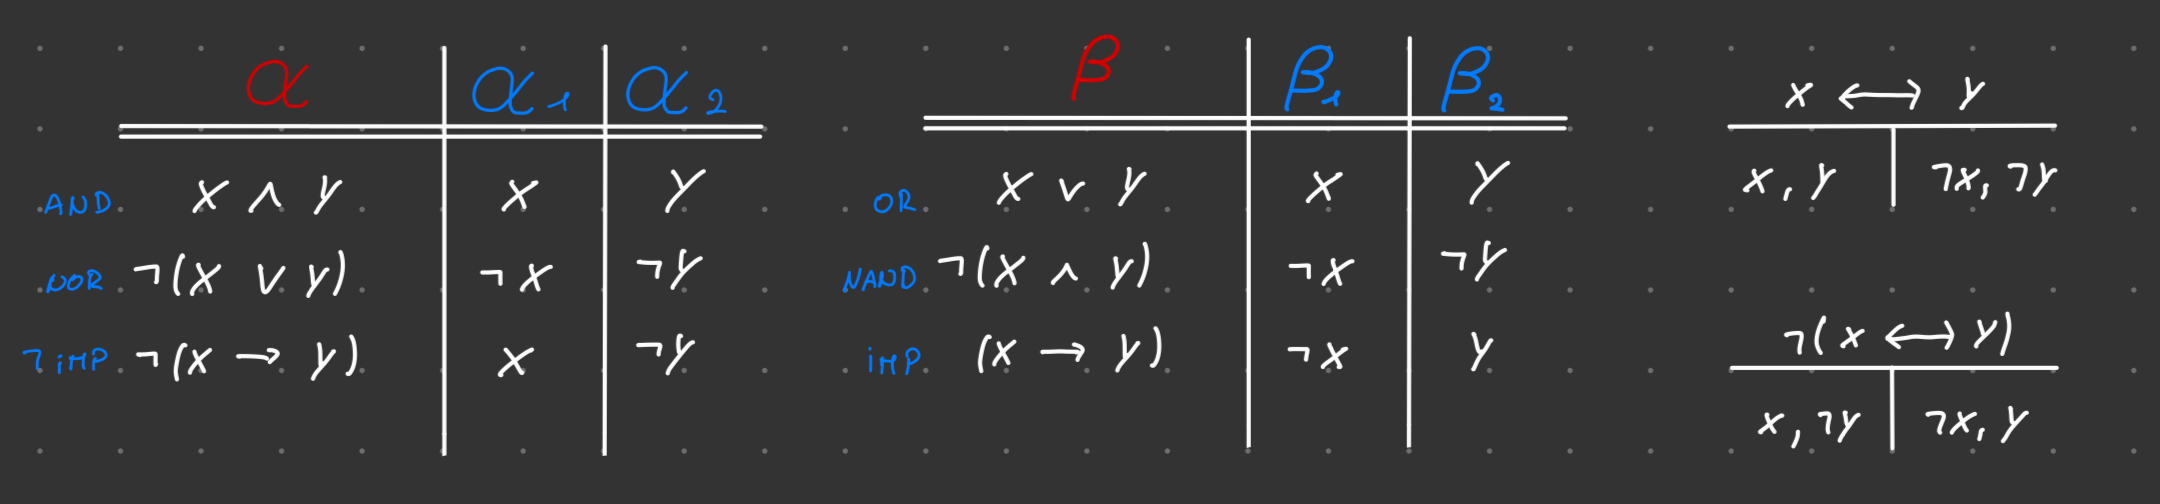 α α₁ α₂
AND X ∧ Y X Y
NOR ¬(X ∨ Y) ¬X ¬Y
¬IMP ¬(X → Y) X ¬Y
β β₁ β₂
OR X ∨ Y X Y
NAND ¬(X ∧ Y) ¬X ¬Y
IMP (X → Y) ¬X Y
X ↔ Y
X, Y ¬X, ¬Y
¬(X ↔ Y)
X, ¬Y ¬X, Y